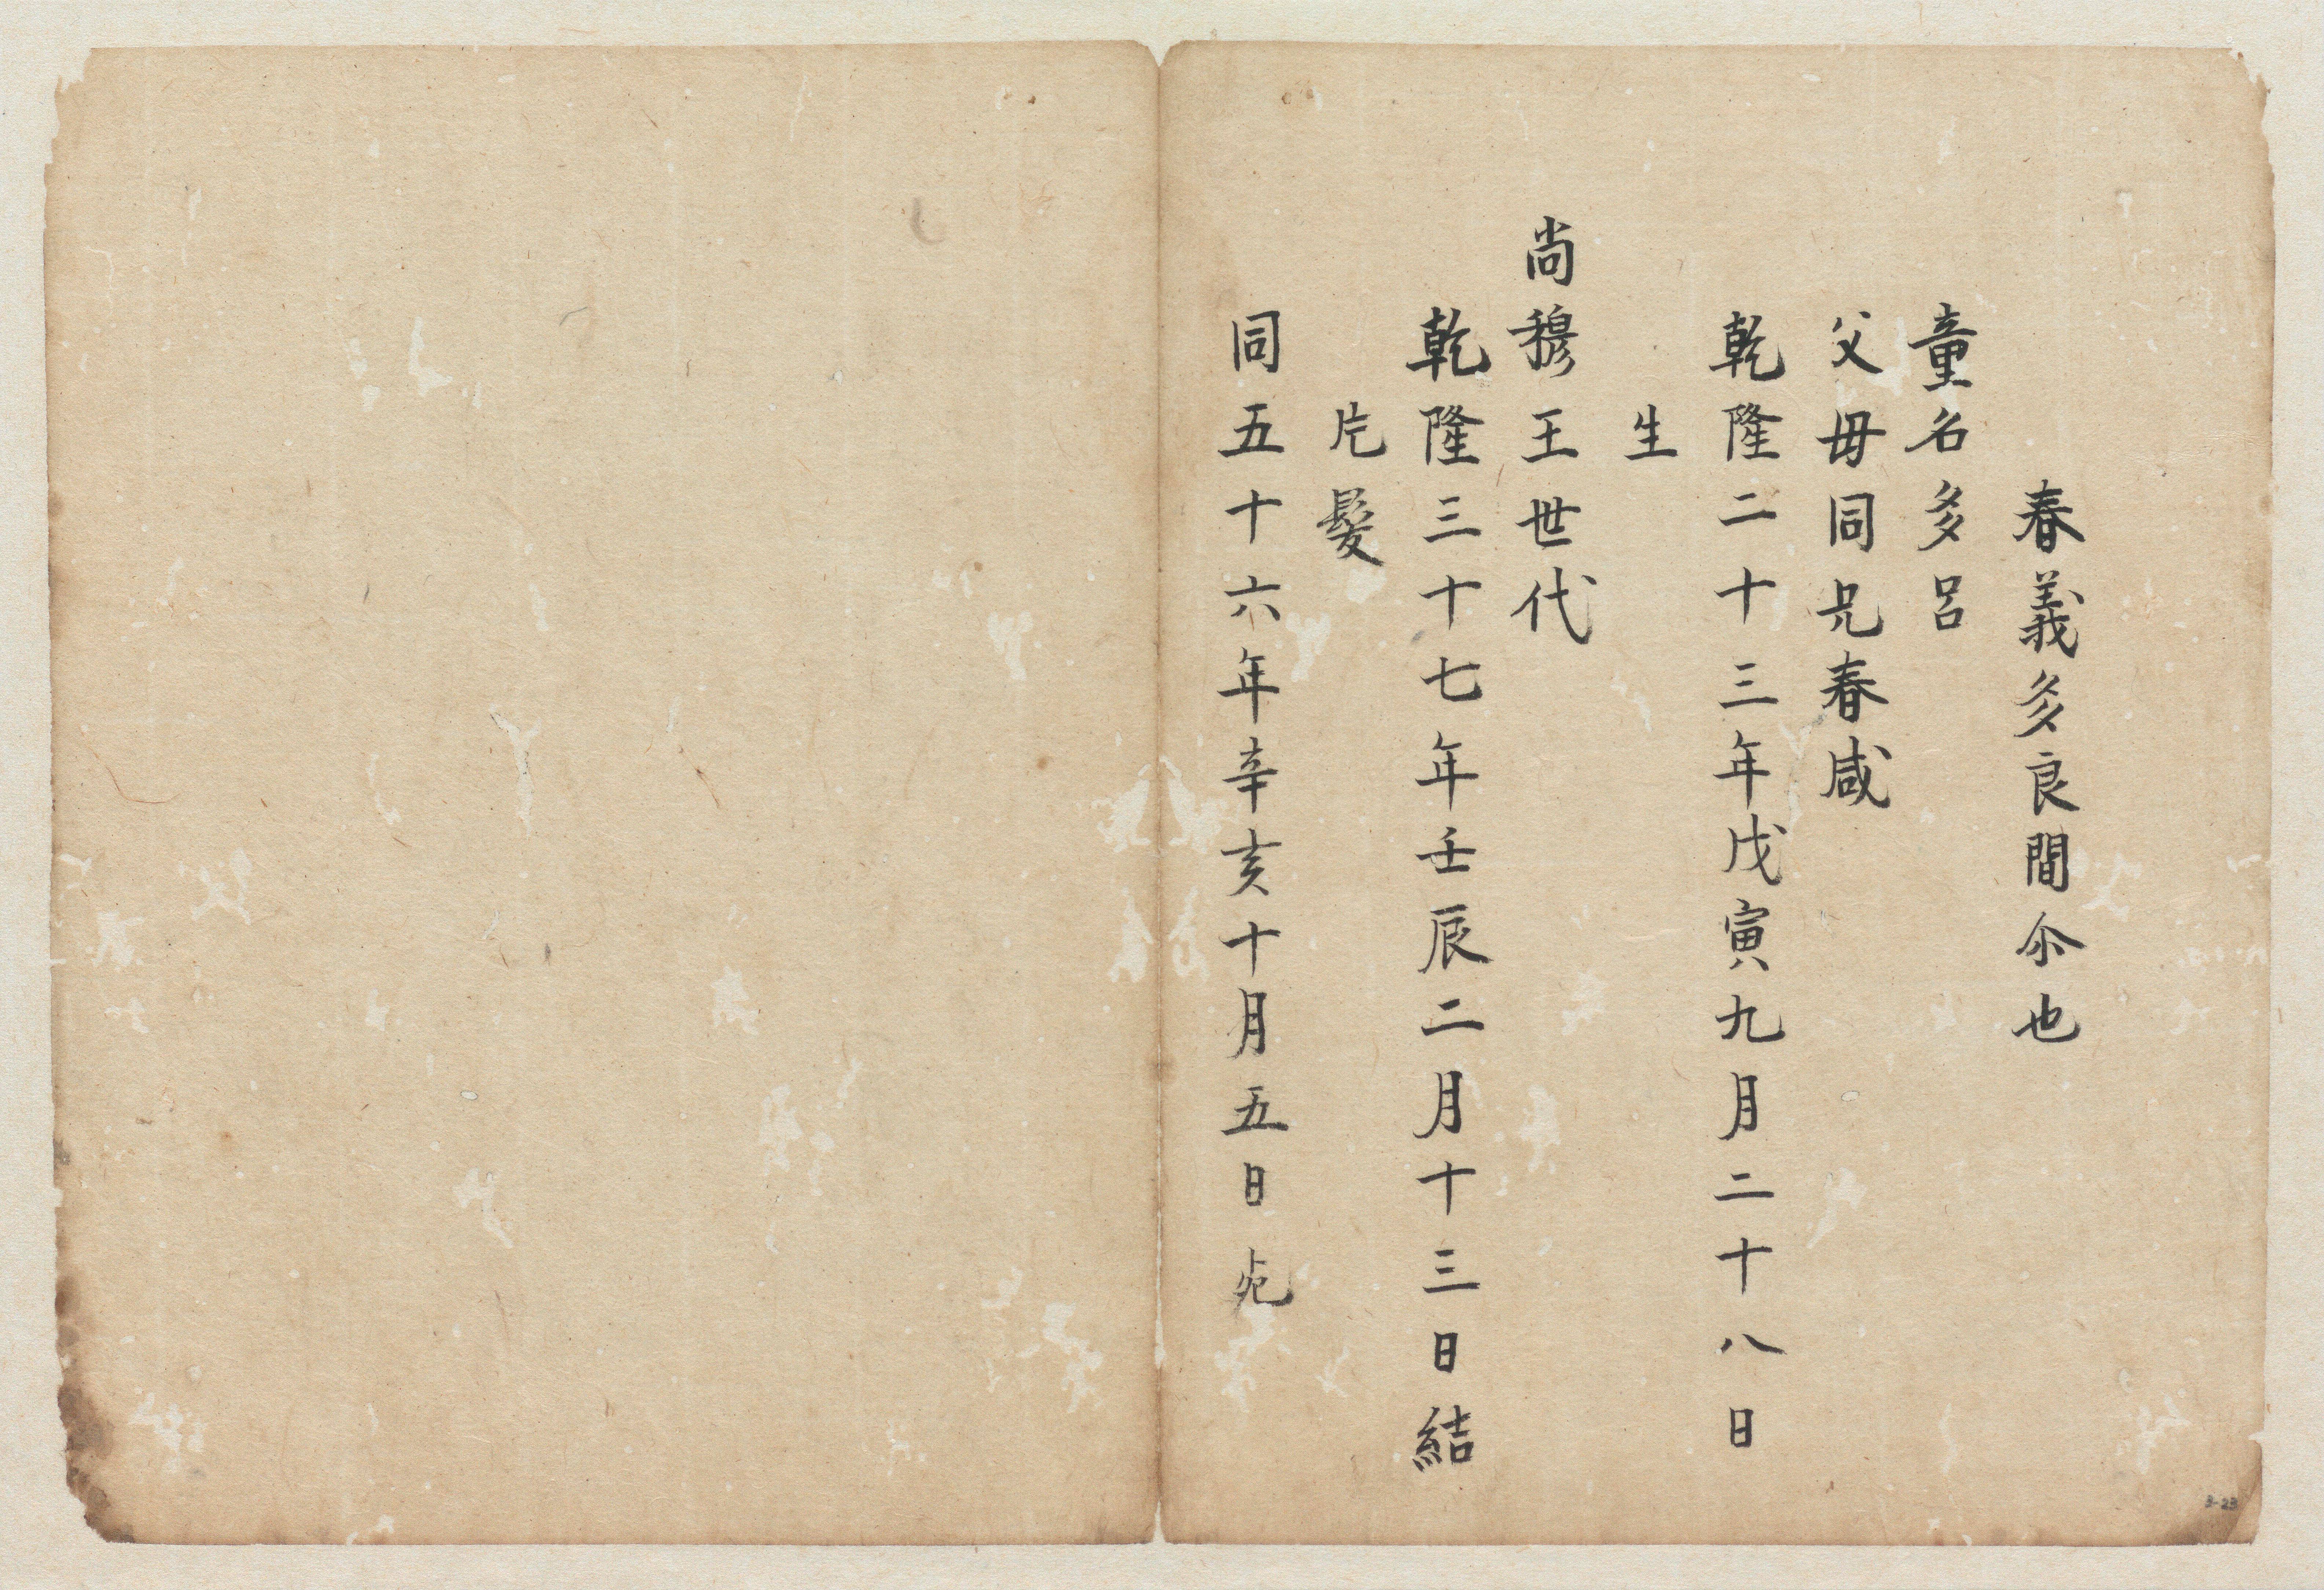 春義多良間尒也
童名多呂
父母同兄春咸
乾隆二十三年戊寅九月二十八日
生
尚穆王世代
乾隆三十七年壬辰二月十三日結
片髪
同五十六年辛亥十月五日死
3-23